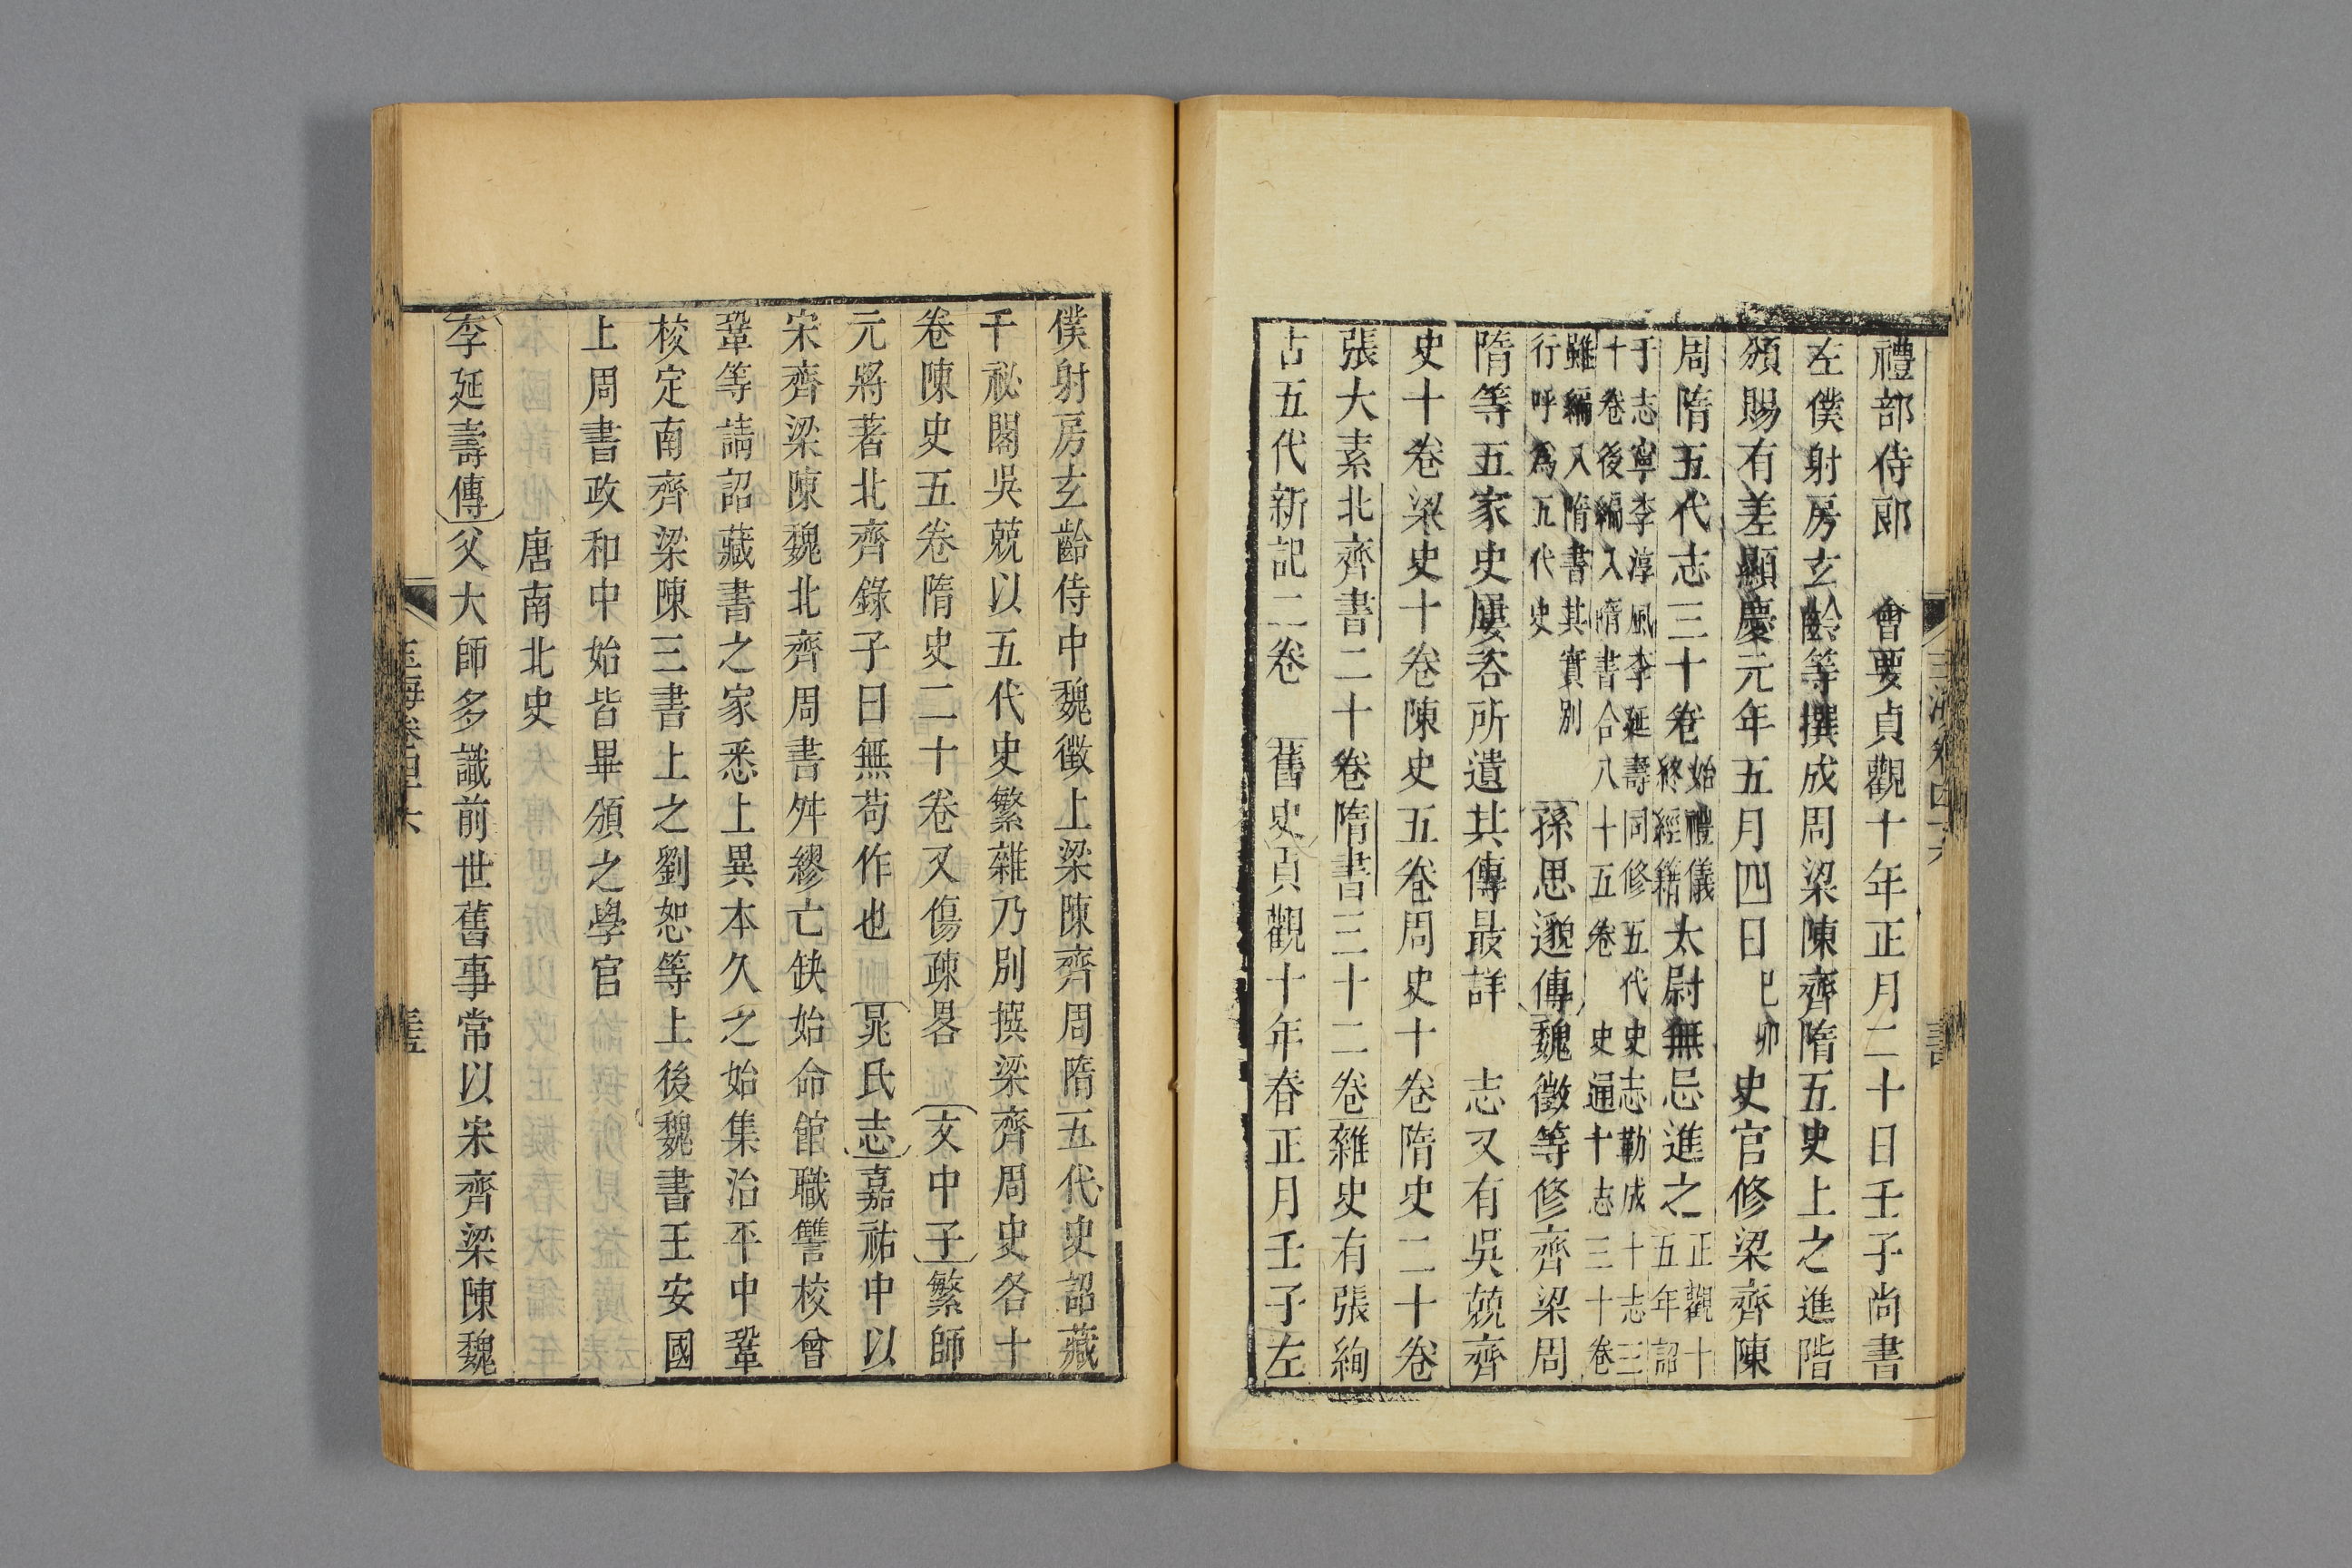 禮部侍郎　會要貞觀十年正月二十日壬子尚書
左僕射房玄齡等撰成周梁陳齊隋五史上之進階
頒賜有差顯慶元年五月四日己卯史官修梁齊陳
周隋五代志三十卷始禮儀終經籍太尉無忌進之正觀十五年詔
于志寧李淳風李延壽同修五代史志勒成十志三
十卷後編入隋書合八十五卷　史通十志三十卷
雖編入隋書其實別行呼為五代史　孫思邈傳魏徵等修齊梁周
隋等五家史屢咨所遺其傳最詳　志又有吳兢齊
史十卷梁史十卷陳史五卷周史十卷隋史二十卷
張大素北齊書二十卷隋書三十二卷雜史有張絢
古五代新記二卷　舊史貞觀十年春正月壬子左
僕射房玄齡侍中魏徵上梁陳齊周隋五代史詔藏
于祕閣吳兢以五代史繁雜乃別撰梁齊周史各十
卷陳史五卷隋史二十卷又傷疎畧　文中子繁師
元將著北齊錄子曰無苟作也　晁氏志嘉祐中以
宋齊梁陳魏北齊周書舛繆亡缺始命館職讐校曾
鞏等請詔藏書之家悉上異本久之始集治平中鞏
校定南齊梁陳三書上之劉恕等上後魏書王安國
上周書政和中始皆畢頒之學官
唐南北史
李延壽傳父大師多識前世舊事常以宋齊梁陳魏
玉海卷四十六